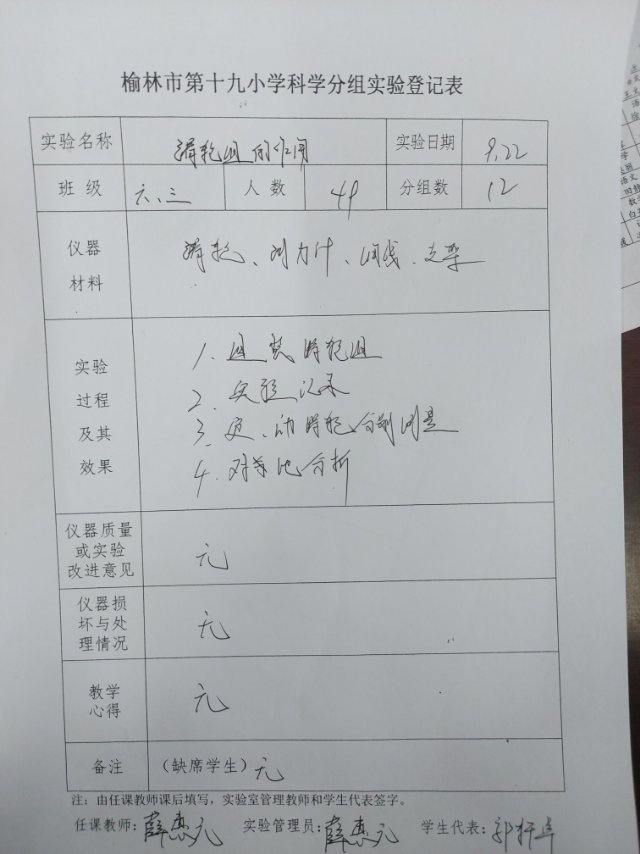 榆林市第十九小学科学分组实验登记表
实验名称 滑轮组的作用 实验日期 9.22
班级 六、三 人数 49 分组数 12
仪器
材料
滑轮、测力计、细线、支架
实验
过程
及其
效果
1. 组装滑轮组
2. 实验记录
3. 定、动滑轮分别测量
4. 对等比分析
仪器质量
或实验
改进意见
无
仪器损
坏与处
理情况
无
教学
心得
无
备注 (缺席学生) 无
注：由任课教师课后填写，实验室管理教师和学生代表签字。
任课教师： 实验管理员： 学生代表：